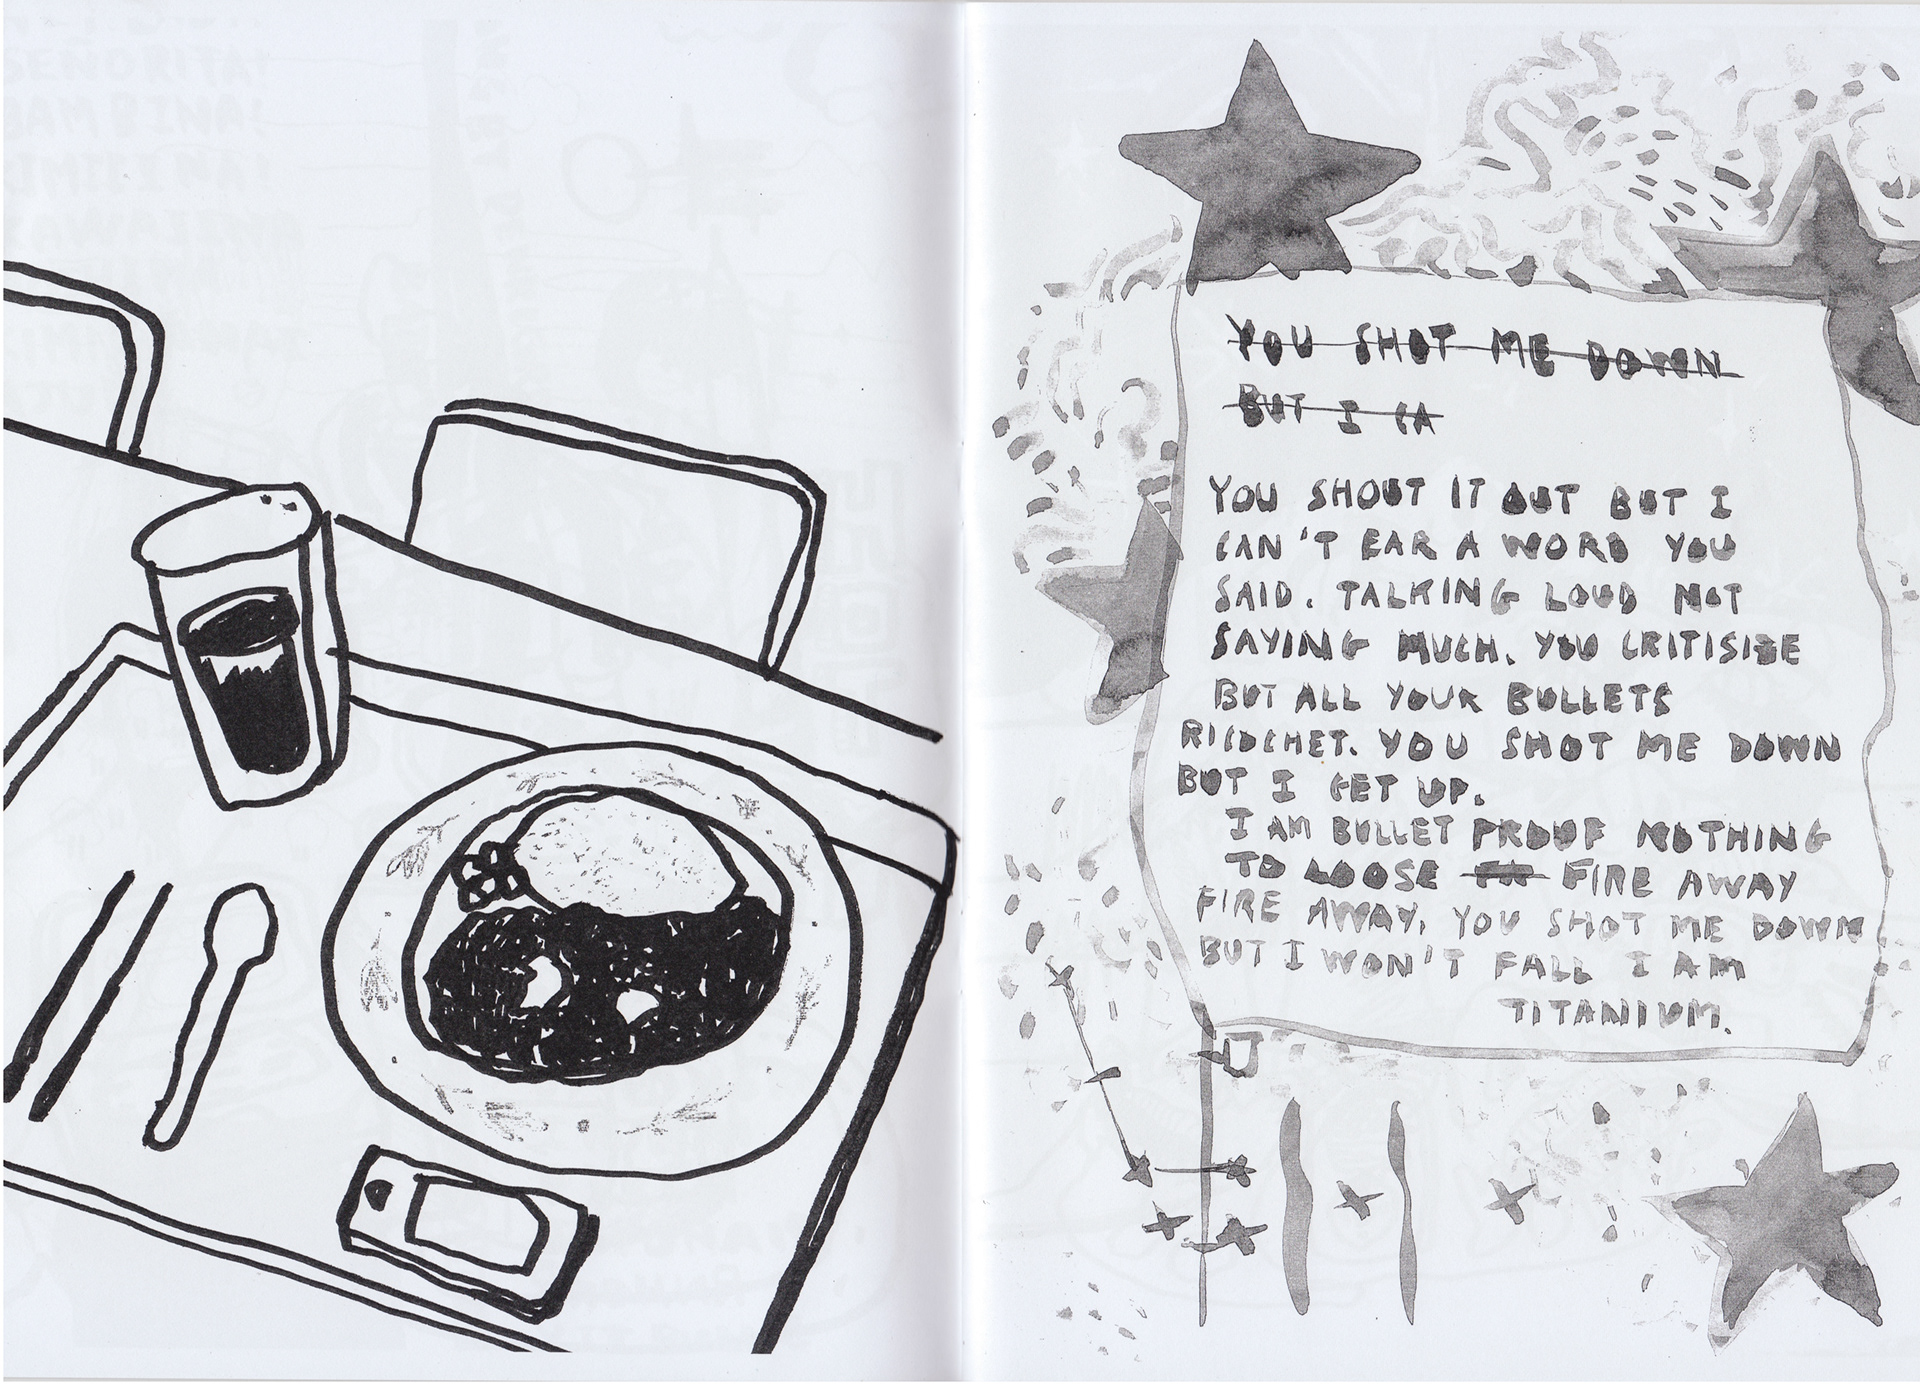 YOU SHOT ME DOWN
BUT I CA
YOU SHOUT IT OUT BUT I
CAN'T EAR A WORD YOU
SAID. TALKING LOUD NOT
SAYING MUCH. YOU CRITISIZE
BUT ALL YOUR BULLETS
RICOCHET. YOU SHOT ME DOWN
BUT I GET UP.
I AM BULLET PROUF NOTHING
TO LOOSE FIRE AWAY
FIRE AWAY. YOU SHOT ME DOWN
BUT I WON'T FALL I AM
TITANIUM.